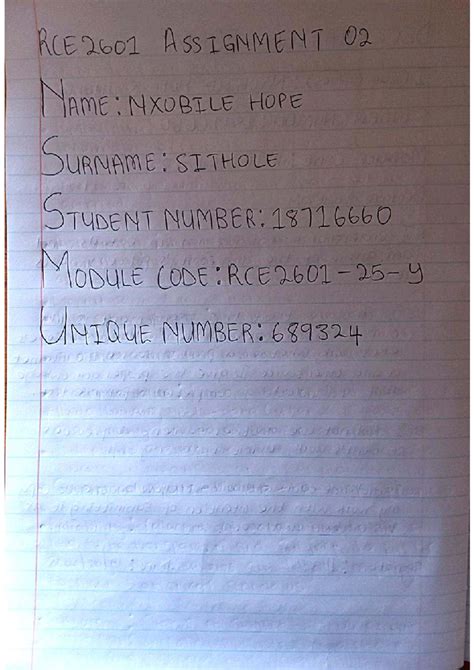 RCE2601 ASSIGNMENT 02
NAME: NXOBILE HOPE
SURNAME: SITHOLE
STUDENT NUMBER: 18716660
MODULE CODE: RCE2601-25-Y
UNIQUE NUMBER: 689324